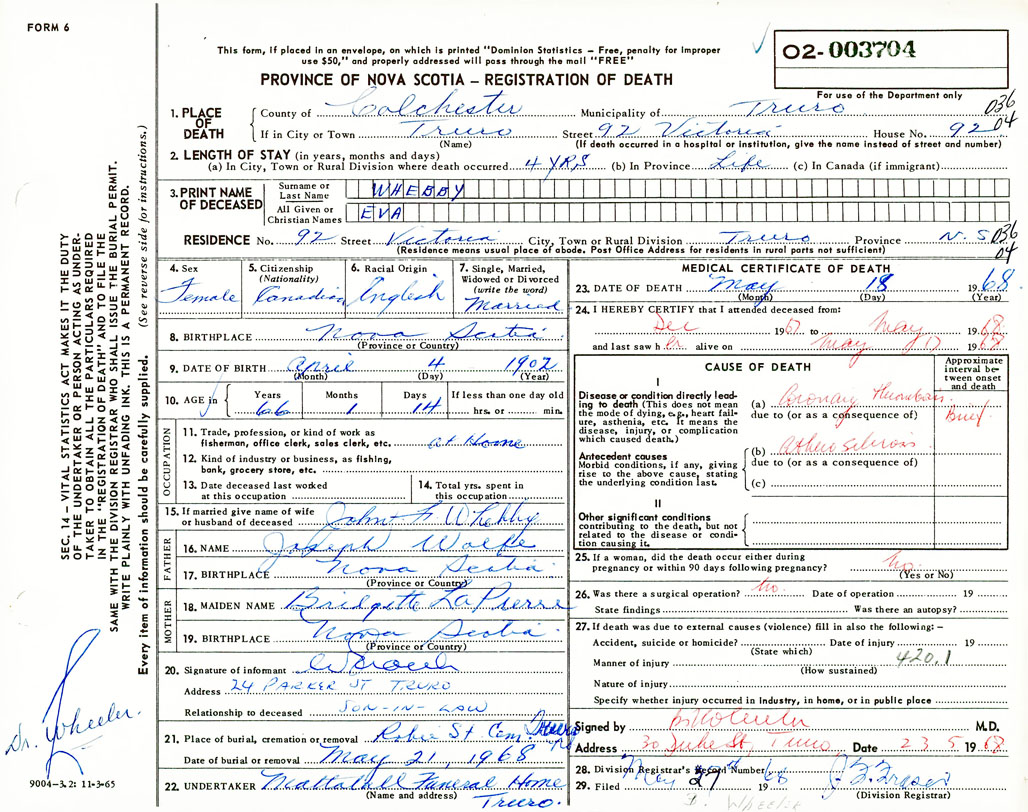 FORM 6
This form, if placed in an envelope, on which is printed "Dominion Statistics – Free, penalty for improper
use $50," and properly addressed will pass through the mail "FREE"
PROVINCE OF NOVA SCOTIA – REGISTRATION OF DEATH
02-003704
For use of the Department only
036
04
1. PLACE OF DEATH
County of Colchester Municipality of Truro
If in City or Town Truro Street 92 Victoria House No. 92
(Name) (If death occurred in a hospital or institution, give the name instead of street and number)
2. LENGTH OF STAY (in years, months and days)
(a) In City, Town or Rural Division where death occurred 4 YRS (b) In Province Life (c) In Canada (if immigrant)
3. PRINT NAME OF DECEASED
Surname or Last Name WHEBBY
All Given or Christian Names EVA
RESIDENCE No. 92 Street Victoria City, Town or Rural Division Truro Province N.S. 036
04
(Residence means usual place of abode. Post Office Address for residents in rural parts not sufficient)
4. Sex Female
5. Citizenship (Nationality) Canadian
6. Racial Origin English
7. Single, Married, Widowed or Divorced (write the word) Married
8. BIRTHPLACE Nova Scotia
(Province or Country)
9. DATE OF BIRTH April 4 1902
(Month) (Day) (Year)
10. AGE in Years 66 Months 1 Days 14 If less than one day old hrs. or min.
OCCUPATION
11. Trade, profession, or kind of work as
fisherman, office clerk, sales clerk, etc. at Home
12. Kind of industry or business, as fishing,
bank, grocery store, etc.
13. Date deceased last worked
at this occupation
14. Total yrs. spent in
this occupation
15. If married give name of wife
or husband of deceased John F Whebby
FATHER
16. NAME Joseph Wolfe
17. BIRTHPLACE Nova Scotia
(Province or Country)
MOTHER
18. MAIDEN NAME Bridgette LaPierre
19. BIRTHPLACE Nova Scotia
(Province or Country)
20. Signature of informant
Address 24 PARKER ST TRURO
Relationship to deceased SON-IN-LAW
21. Place of burial, cremation or removal Robie St Cem. Truro
Date of burial or removal May 21, 1968
22. UNDERTAKER Mattatall Funeral Home
(Name and address) Truro.
MEDICAL CERTIFICATE OF DEATH
23. DATE OF DEATH May 18 1968
(Month) (Day) (Year)
24. I HEREBY CERTIFY that I attended deceased from:
Dec 1967 to May 1968
and last saw her alive on May 17 1968
CAUSE OF DEATH
Approximate interval between onset and death
I
Disease or condition directly leading to death (This does not mean the mode of dying, e.g., heart failure, asthenia, etc. It means the disease, injury, or complication which caused death.)
(a) Coronary Thrombosis Brief
due to (or as a consequence of)
Antecedent causes
Morbid conditions, if any, giving rise to the above cause, stating the underlying condition last.
(b)
due to (or as a consequence of)
(c)
II
Other significant conditions
contributing to the death, but not
related to the disease or condition causing it.
25. If a woman, did the death occur either during
pregnancy or within 90 days following pregnancy? no.
(Yes or No)
26. Was there a surgical operation? no. Date of operation 19
State findings Was there an autopsy?
27. If death was due to external causes (violence) fill in also the following: –
Accident, suicide or homicide? Date of injury 19
(State which)
Manner of injury 420.1
(How sustained)
Nature of injury
Specify whether injury occurred in industry, in home, or in public place
Signed by M.D.
Address 30 Duke St, Truro Date 23 5 1968
28. Division Registrar's Record Number
29. Filed May 27th 1968
(Division Registrar)
WHEELER
SEC. 14 – VITAL STATISTICS ACT MAKES IT THE DUTY
OF THE UNDERTAKER OR PERSON ACTING AS UNDER-
TAKER TO OBTAIN ALL THE PARTICULARS REQUIRED
IN THE "REGISTRATION OF DEATH" AND TO FILE THE
SAME WITH THE DIVISION REGISTRAR WHO SHALL ISSUE THE BURIAL PERMIT.
WRITE PLAINLY WITH UNFADING INK. THIS IS A PERMANENT RECORD.
Every item of information should be carefully supplied. (See reverse side for instructions.)
Dr. Wheeler.
9004–3.2: 11-3-65